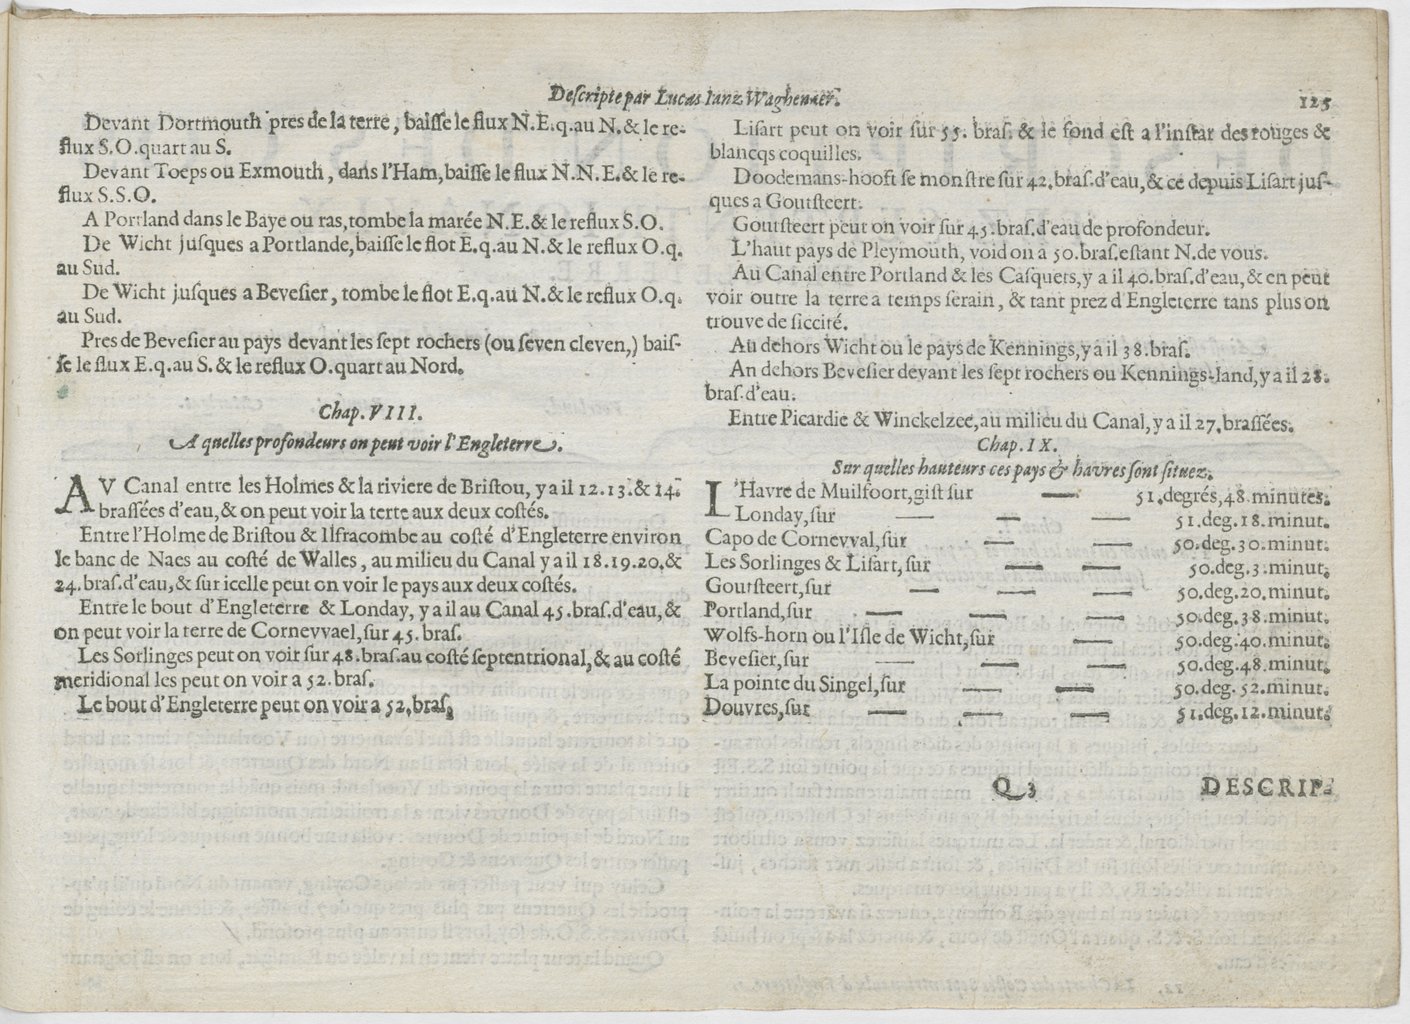 Descripte par Lucas Ianz Waghenaer.
125
Devant Dortmouth pres de la terre, baisse le flux N.E.q.au N. & le re-
flux S.O.quart au S.
Devant Toeps ou Exmouth, dans l'Ham, baisse le flux N.N.E. & le re-
flux S.S.O.
A Portland dans le Baye ou ras, tombe la marée N.E. & le reflux S.O.
De Wicht jusques a Portlande, baisse le flot E.q.au N. & le reflux O.q.
au Sud.
De Wicht jusques a Bevesier, tombe le flot E.q.au N. & le reflux O.q.
au Sud.
Pres de Bevesier au pays devant les sept rochers (ou seven cleven,) bais-
se le flux E.q.au S. & le reflux O.quart au Nord.
Chap. VIII.
A quelles profondeurs on peut voir l'Engleterre.
AV Canal entre les Holmes & la riviere de Bristou, y a il 12.13. & 14.
brassées d'eau, & on peut voir la terre aux deux costés.
Entre l'Holme de Bristou & Ilsfracombe au costé d'Engleterre environ
le banc de Naes au costé de Walles, au milieu du Canal y a il 18.19.20, &
24. bras. d'eau, & sur icelle peut on voir le pays aux deux costés.
Entre le bout d'Engleterre & Londay, y a il au Canal 45. bras. d'eau, &
on peut voir la terre de Cornevvael, sur 45. bras.
Les Sorlinges peut on voir sur 48. bras. au costé septentrional, & au costé
meridional les peut on voir a 52. bras.
Le bout d'Engleterre peut on voir a 52, bras,
Lisart peut on voir sur 55. bras. & le fond est a l'instar des rouges &
blancqs coquilles.
Doodemans-hooft se monstre sur 42. bras. d'eau, & ce depuis Lisart jus-
ques a Goutsteert.
Goutsteert peut on voir sur 45. bras. d'eau de profondeur.
L'haut pays de Pleymouth, void on a 50. bras. estant N. de vous.
Au Canal entre Portland & les Casquets, y a il 40. bras. d'eau, & en peut
voir outre la terre a temps serain, & tant prez d'Engleterre tans plus on
trouve de siccité.
Au dehors Wicht ou le pays de Kennings, y a il 38. bras.
An dehors Bevesier devant les sept rochers ou Kennings-land, y a il 28.
bras. d'eau.
Entre Picardie & Winckelzee, au milieu du Canal, y a il 27. brassées.
Chap. IX.
Sur quelles hauteurs ces pays & havres sont situez.
L'Havre de Muilfoort, gist sur — 51. degrés, 48. minutes.
Londay, sur — — — 51. deg. 18. minut.
Capo de Cornevval, sur — — 50. deg. 30. minut.
Les Sorlinges & Lisart, sur — — 50. deg. 3. minut.
Goutsteert, sur — — — 50. deg. 20. minut.
Portland, sur — — — 50. deg. 38. minut.
Wolfs-horn ou l'Isle de Wicht, sur — 50. deg. 40. minut.
Bevesier, sur — — — 50. deg. 48. minut.
La pointe du Singel, sur — — 50. deg. 52. minut.
Douvres, sur — — — 51. deg. 12. minut.
Q 3
DESCRIP-